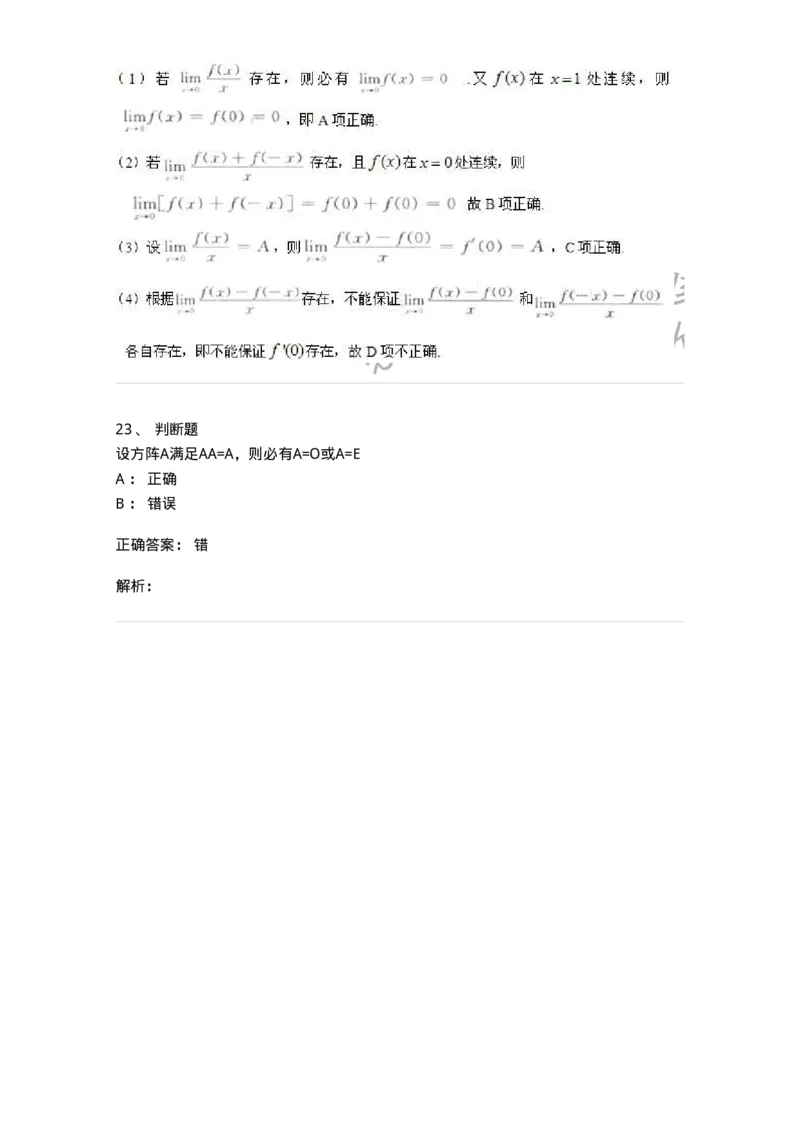 （1）若 lim_{x→0} f(x)/x 存在，则必有 lim_{x→0} f(x) = 0 .又 f(x) 在 x=1 处连续，则
lim_{x→0} f(x) = f(0) = 0 ，即 A 项正确.
（2）若 lim_{x→0} [f(x) + f(-x)]/x 存在，且 f(x) 在 x = 0 处连续，则
lim_{x→0} [f(x) + f(-x)] = f(0) + f(0) = 0 故 B 项正确.
（3）设 lim_{x→0} f(x)/x = A，则 lim_{x→0} [f(x) - f(0)]/x = f'(0) = A ，C 项正确.
（4）根据 lim_{x→0} [f(x) - f(-x)]/x 存在，不能保证 lim_{x→0} [f(x) - f(0)]/x 和 lim_{x→0} [f(-x) - f(0)]/x
各自存在，即不能保证 f'(0) 存在，故 D 项不正确.
23、 判断题
设方阵A满足AA=A，则必有A=O或A=E
A： 正确
B： 错误
正确答案： 错
解析：